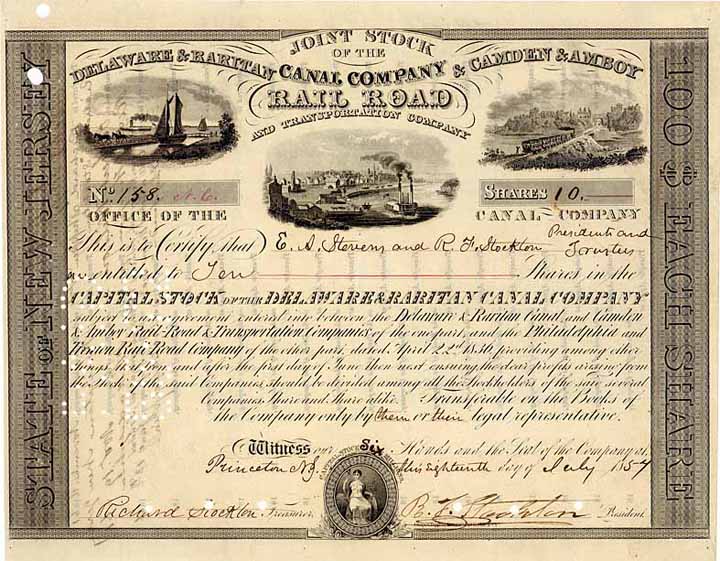 JOINT STOCK
OF THE
DELAWARE & RARITAN CANAL COMPANY & CAMDEN & AMBOY
RAIL ROAD
AND TRANSPORTATION COMPANY
No. 158.
SHARES 10.
OFFICE OF THE CANAL COMPANY
This is to Certify, that E. A. Stevens and R. F. Stockton Presidents and Trustees
entitled to Ten Shares in the
CAPITAL STOCK OF THE DELAWARE & RARITAN CANAL COMPANY
subject to an agreement entered into between the Delaware & Raritan Canal, and Camden
& Amboy Rail-Road & Transportation Companies of the one part, and the Philadelphia and
Trenton Rail Road Company of the other part, dated April 22d 1836, providing among other
things, that from and after the first day of June then next ensuing the clear profits arising from
the Stock of the said Companies should be divided among all the Stockholders of the said several
Companies Share and Share alike. Transferable on the Books of
the Company only by them or their legal representative.
Witness our Hands and the Seal of the Company at
Princeton NJ. this Eighteenth day of July 1854
Richard Stockton Treasurer.
R. F. Stockton President.
STATE OF NEW JERSEY
100 $ EACH SHARE